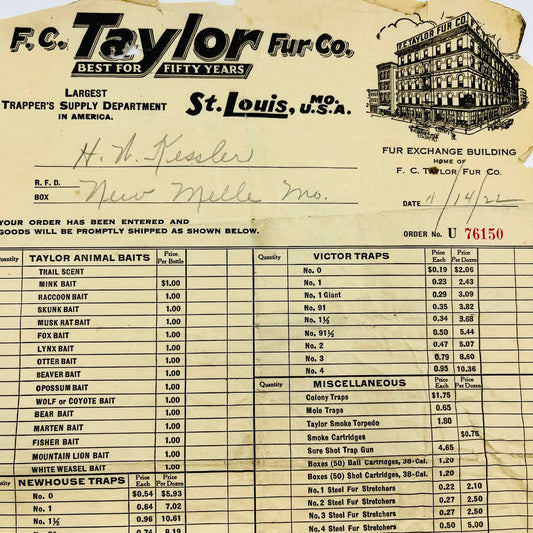 F.C. Taylor Fur Co.
BEST FOR FIFTY YEARS
LARGEST
TRAPPER'S SUPPLY DEPARTMENT
IN AMERICA.
St. Louis, MO. U.S.A.
F.C. TAYLOR FUR CO.
FUR EXCHANGE BUILDING
HOME OF
F. C. TAYLOR FUR CO.
H. W. Kessler
R. F. D.
BOX New Melle Mo.
DATE 11/14/22
YOUR ORDER HAS BEEN ENTERED AND
GOODS WILL BE PROMPTLY SHIPPED AS SHOWN BELOW.
ORDER No. U 76150
Quantity TAYLOR ANIMAL BAITS Price Per Bottle
TRAIL SCENT
MINK BAIT $1.00
RACCOON BAIT 1.00
SKUNK BAIT 1.00
MUSK RAT BAIT 1.00
FOX BAIT 1.00
LYNX BAIT 1.00
OTTER BAIT 1.00
BEAVER BAIT 1.00
OPOSSUM BAIT 1.00
WOLF or COYOTE BAIT 1.00
BEAR BAIT 1.00
MARTEN BAIT 1.00
FISHER BAIT 1.00
MOUNTAIN LION BAIT 1.00
WHITE WEASEL BAIT 1.00
Quantity NEWHOUSE TRAPS Price Each Price Per Dozen
No. 0 $0.54 $5.93
No. 1 0.64 7.02
No. 1½ 0.96 10.61
0.74 8.19
Quantity VICTOR TRAPS Price Each Price Per Dozen
No. 0 $0.19 $2.06
No. 1 0.23 2.43
No. 1 Giant 0.29 3.09
No. 91 0.35 3.82
No. 1½ 0.34 3.68
No. 91½ 0.50 5.44
No. 2 0.47 5.07
No. 3 0.79 8.60
No. 4 0.95 10.36
Quantity MISCELLANEOUS Price Each Price Per Dozen
Colony Traps $1.75
Mole Traps 0.65
Taylor Smoke Torpedo 1.80
Smoke Cartridges $0.75
Sure Shot Trap Gun 4.65
Boxes (50) Ball Cartridges, 38-Cal. 1.20
Boxes (50) Shot Cartridges, 38-Cal. 1.20
No. 1 Steel Fur Stretchers 0.22 2.10
No. 2 Steel Fur Stretchers 0.27 2.50
No. 3 Steel Fur Stretchers 0.27 2.50
No. 4 Steel Fur Stretchers 0.50 5.00